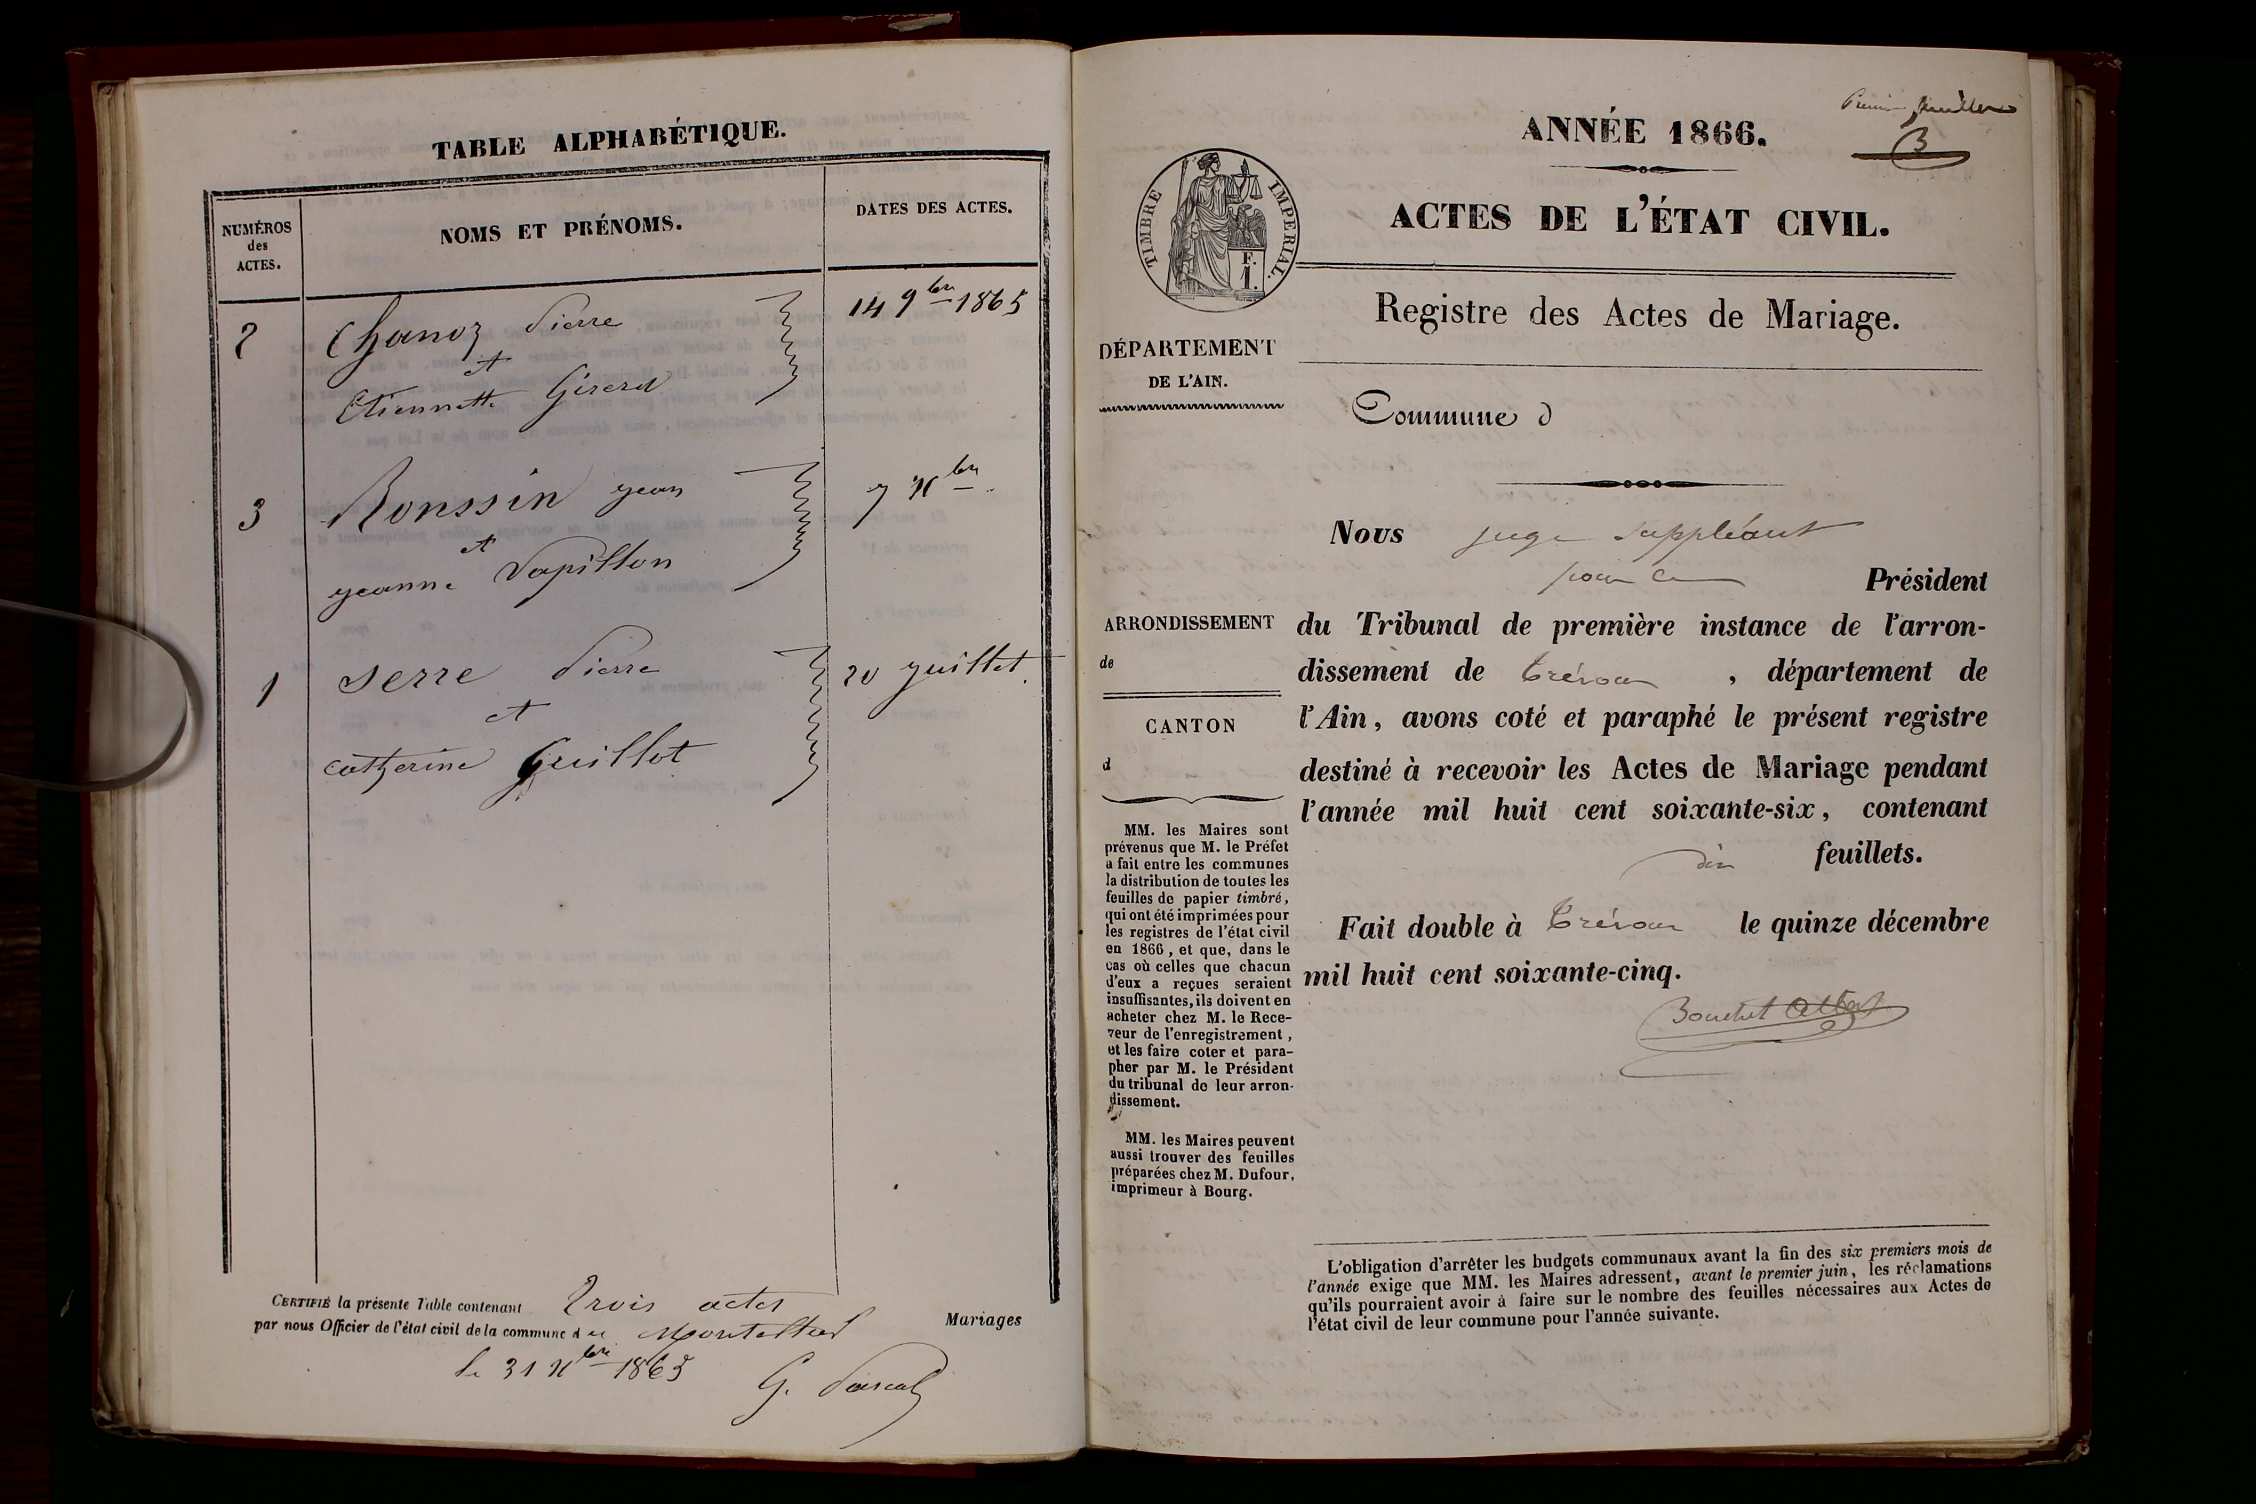 TABLE ALPHABÉTIQUE.
NUMÉROS
des
ACTES.
NOMS ET PRÉNOMS.
DATES DES ACTES.
2 Chanoz Pierre 14 9bre 1865
et
Etiennette Girerd
3 Ronssin jean 7 Xbre.
et
jeanne Papillon
1 Serre Pierre 20 juillet.
et
Catherine Guillot
CERTIFIÉ la présente Table contenant Trois actes Mariages
par nous Officier de l'état civil de la commune de
le 31 Xbre 1865
G. Pascal
Premier feuillet
ANNÉE 1866.
ACTES DE L'ÉTAT CIVIL.
TIMBRE IMPERIAL.
F.
1.
Registre des Actes de Mariage.
DÉPARTEMENT
DE L'AIN.
Commune d
Nous juge suppléant
pour le Président
ARRONDISSEMENT
de
CANTON
d
du Tribunal de première instance de l'arron-
dissement de Trévoux, département de
l'Ain, avons coté et paraphé le présent registre
destiné à recevoir les Actes de Mariage pendant
l'année mil huit cent soixante-six, contenant
dix feuillets.
Fait double à Trévoux le quinze décembre
mil huit cent soixante-cinq.
Bouchet Albert
MM. les Maires sont
prévenus que M. le Préfet
a fait entre les communes
la distribution de toutes les
feuilles de papier timbré,
qui ont été imprimées pour
les registres de l'état civil
en 1866, et que, dans le
cas où celles que chacun
d'eux a reçues seraient
insuffisantes, ils doivent en
acheter chez M. le Rece-
veur de l'enregistrement,
et les faire coter et para-
pher par M. le Président
du tribunal de leur arron-
dissement.
MM. les Maires peuvent
aussi trouver des feuilles
préparées chez M. Dufour,
imprimeur à Bourg.
L'obligation d'arrêter les budgets communaux avant la fin des six premiers mois de
l'année exige que MM. les Maires adressent, avant le premier juin, les réclamations
qu'ils pourraient avoir à faire sur le nombre des feuilles nécessaires aux Actes de
l'état civil de leur commune pour l'année suivante.